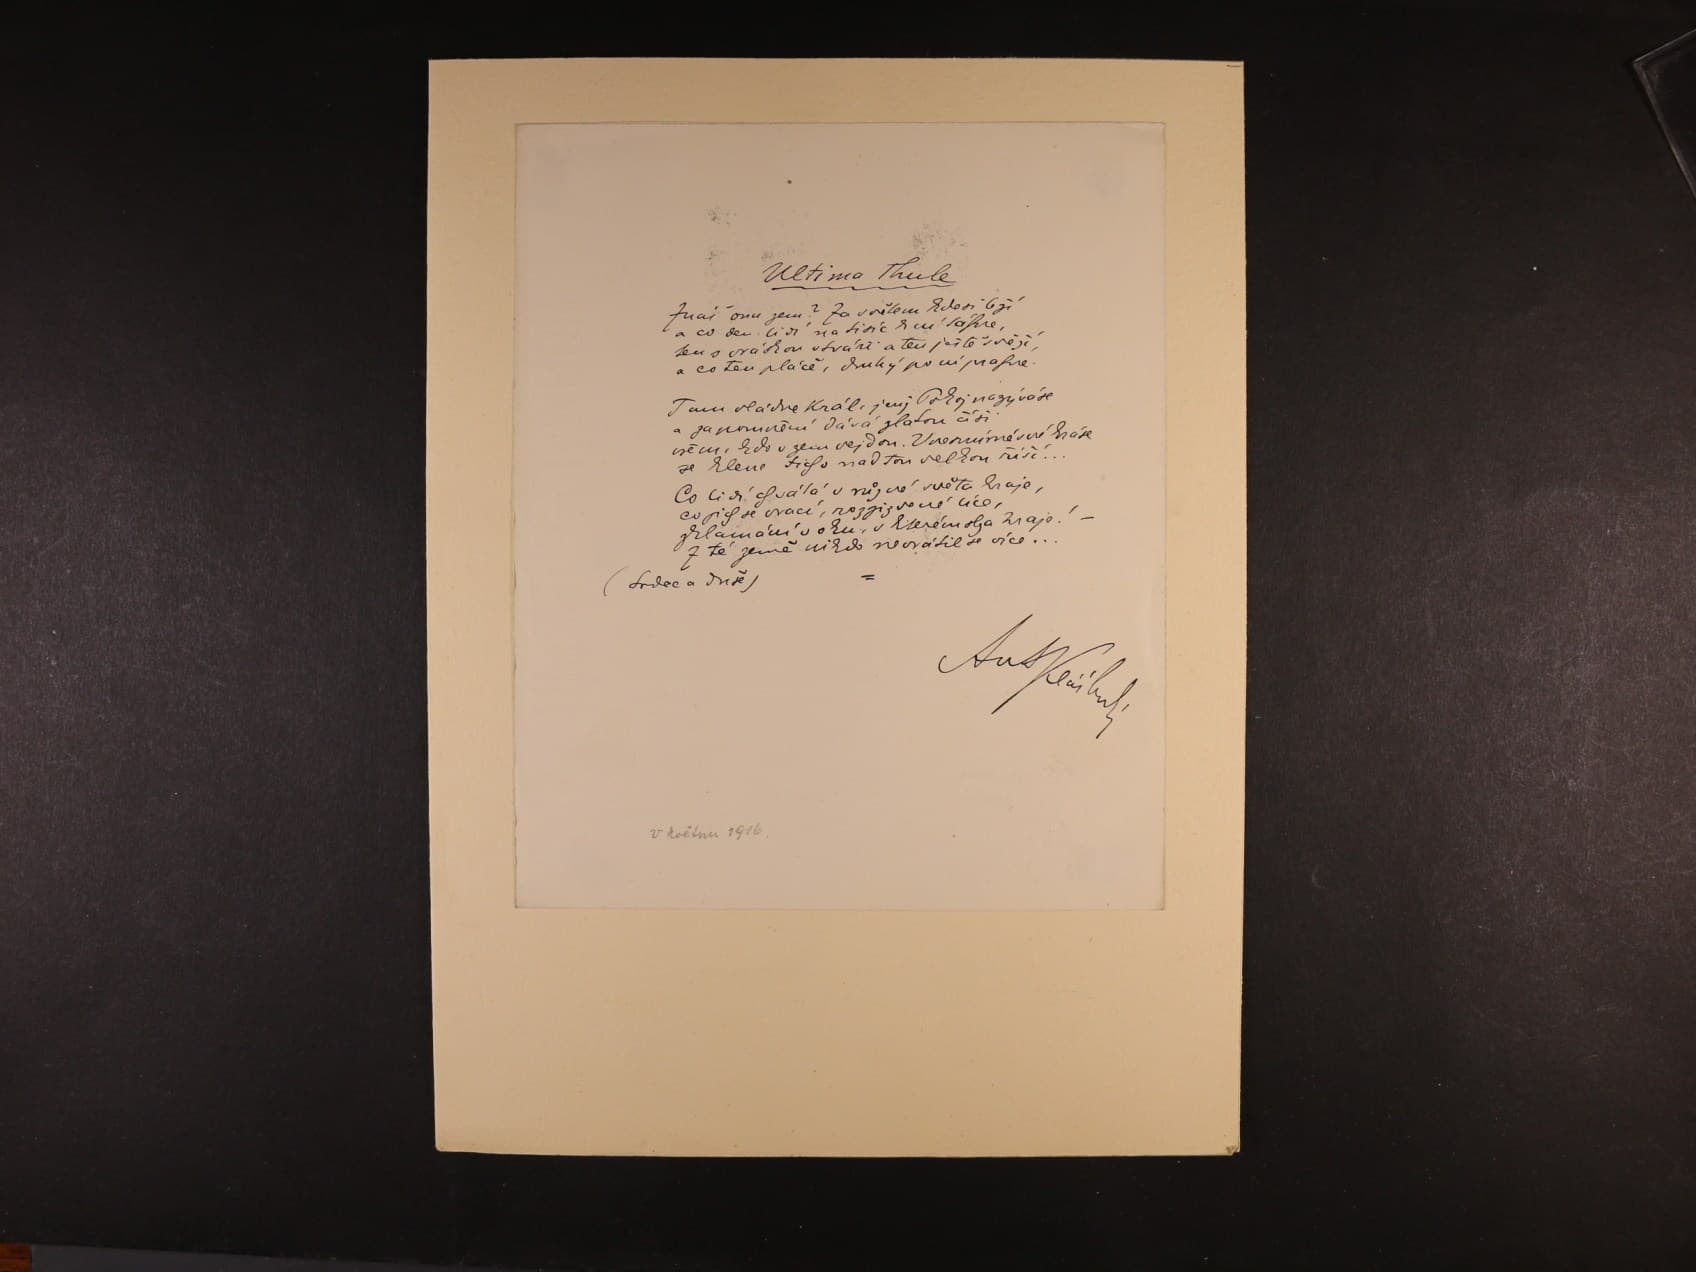 Ultima Thule
Znáš onu zem? Za světem kdesi leží
a co den lidí na tisíc k ní táhne,
ten s vráskou v tváři a ten ještě svěží,
a co ten pláče, druhý po ní prahne.
Tam vládne Král, jenž Pokoj nazývá se
a zapomnění dává zlatou číši
všem, kdo v zem vejdou. V nesmírné své kráse
se klene ticho nad tou velkou říší...
Co lidí chválá v různé světa kraje,
co jich se vrací, rozzizvené líce,
zklamání v oku, v kterém slza hraje! –
Z té země nikdo nevrátil se více...
(Srdce a duše) =
Ant Klášterský
V květnu 1916.